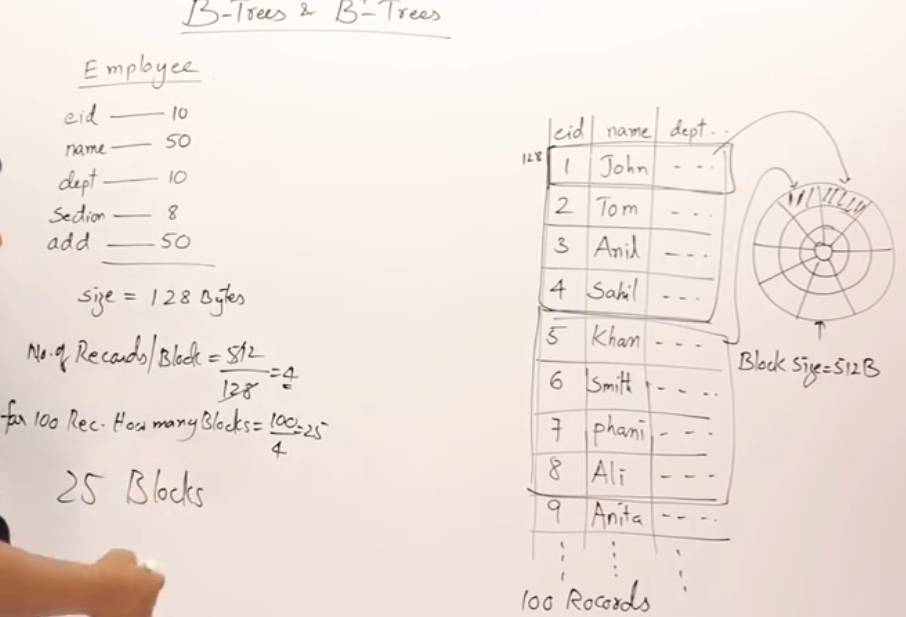 B-Trees & B⁺-Trees
Employee
eid — 10
name — 50
dept — 10
Section — 8
add — 50
size = 128 Bytes
No. of Records/Block = 512/128 = 4
for 100 Rec. How many Blocks = 100/4 = 25
25 Blocks
eid name dept ..
128 1 John - - -
2 Tom - - -
3 Anil - - -
4 Sahil - - -
5 Khan - - -
6 Smith - - -
7 phani - - -
8 Ali - - -
9 Anita - - - -
100 Records
Block Size = 512B